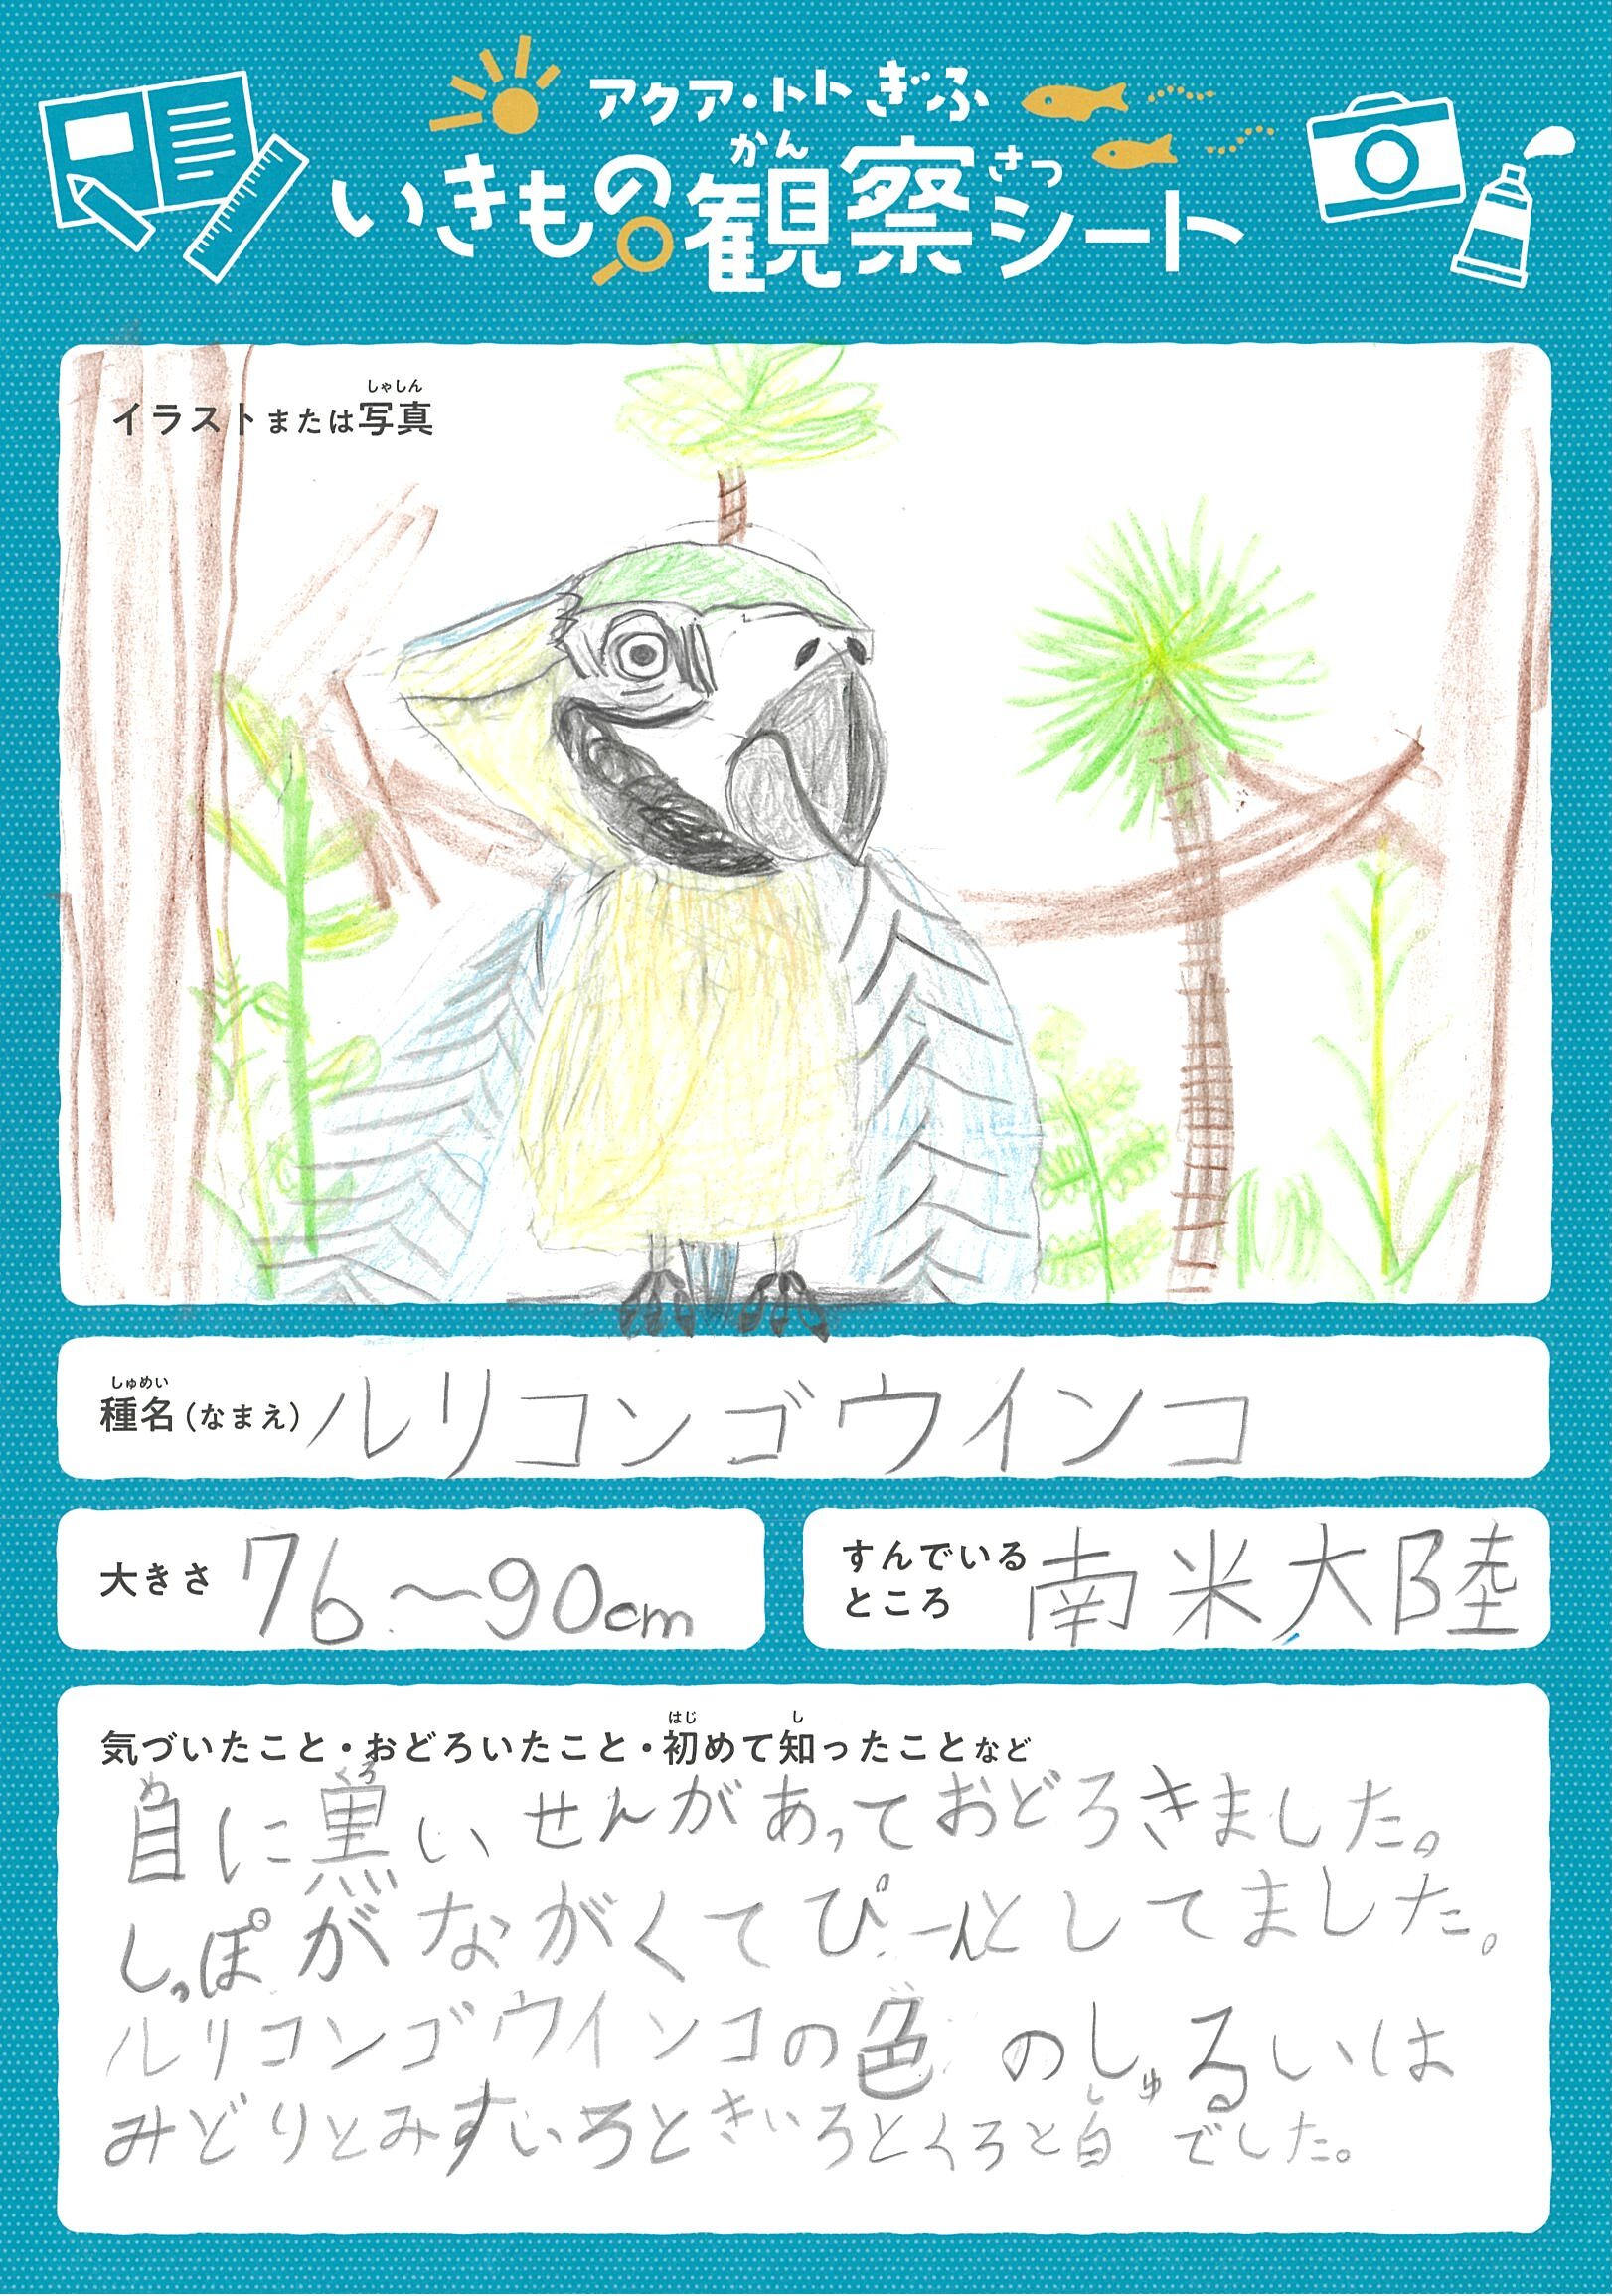 アクア・トトぎふ
いきもの観察シート
かん
さつ
しゃしん
イラストまたは写真
しゅめい
種名(なまえ)ルリコンゴウインコ
大きさ 76〜90cm
すんでいる
ところ
南米大陸
はじ し
気づいたこと・おどろいたこと・初めて知ったことなど
め くろ
目に黒いせんがあっておどろきました。
しっぽがながくてぴーんとしてました。
ルリコンゴウインコの色のしゅるいは
し
みどりとみずいろときいろとくろと白でした。